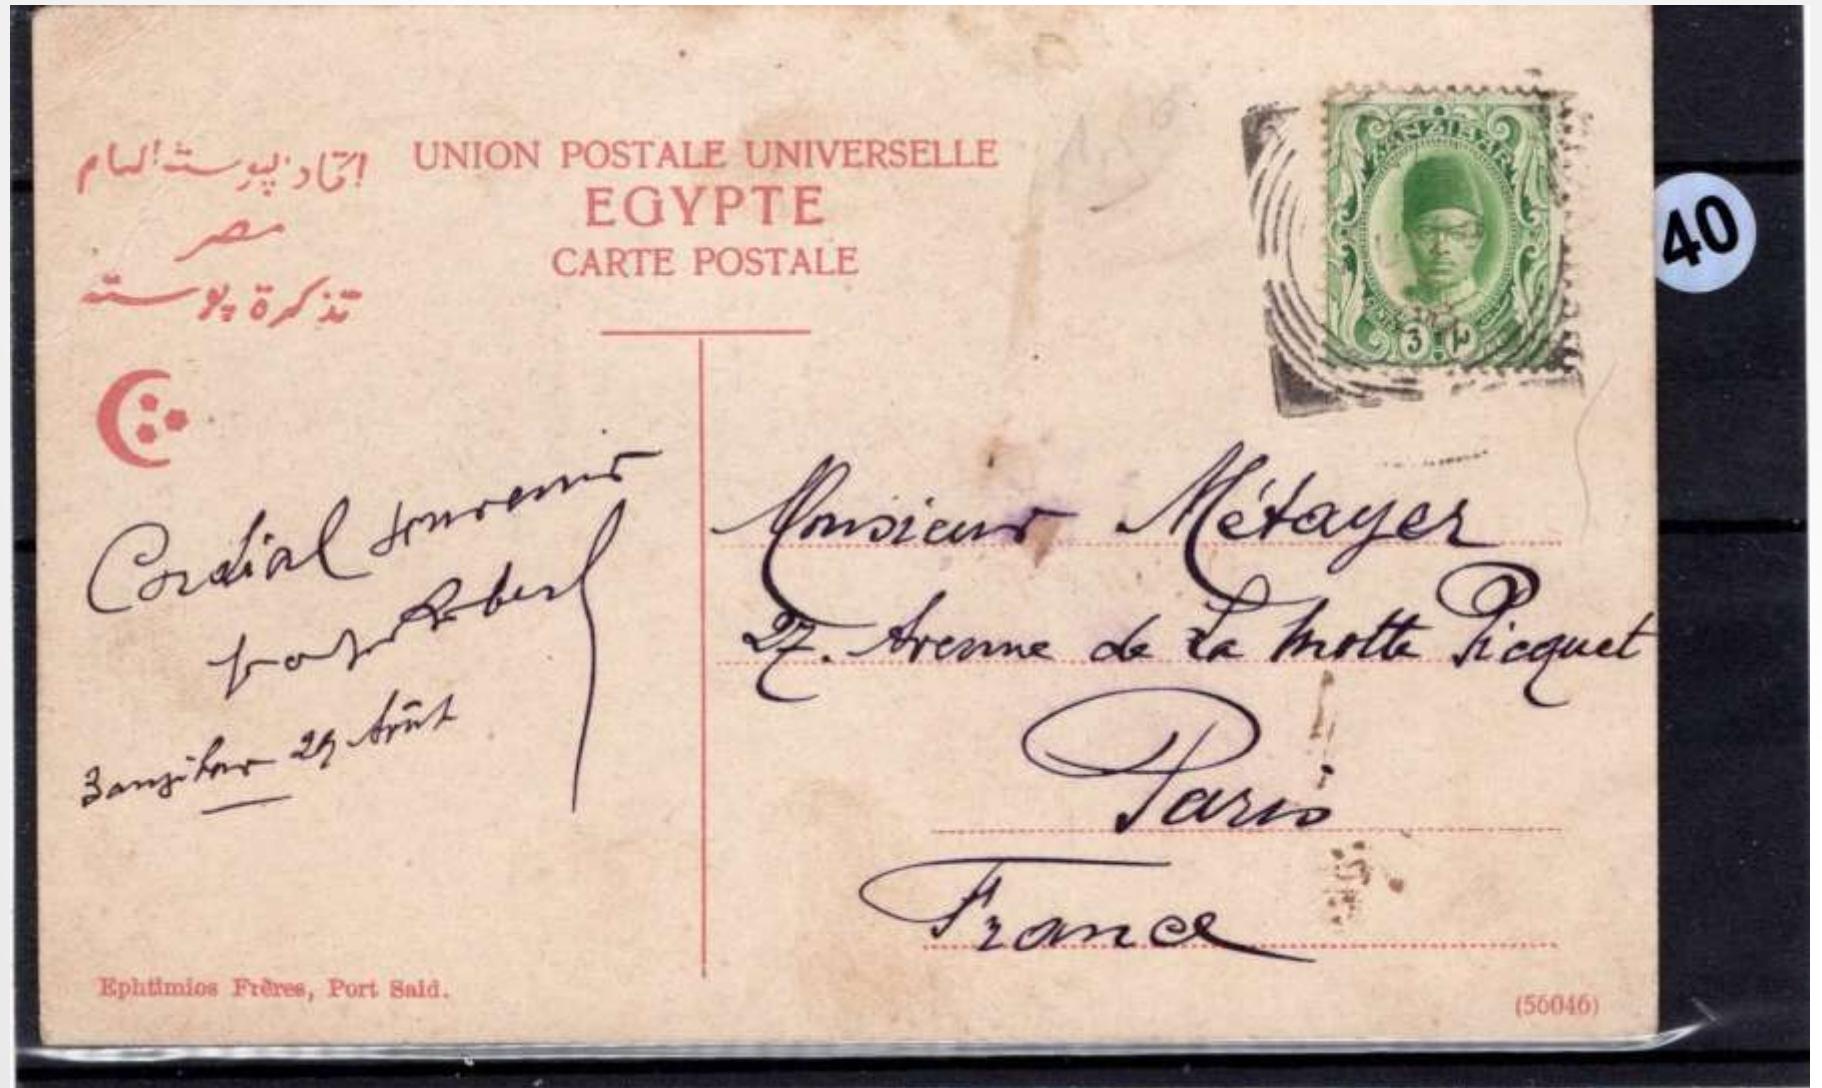 اتحاد پوسته العام
مصر
تذكرة پوسته
UNION POSTALE UNIVERSELLE
EGYPTE
CARTE POSTALE
ZANZIBAR
3
40
Cordial souvenir
Robert
Zanzibar 29 Août
Monsieur Métayer
27. Avenue de La Motte Picquet
Paris
France
Ephtimios Frères, Port Said.
(56046)